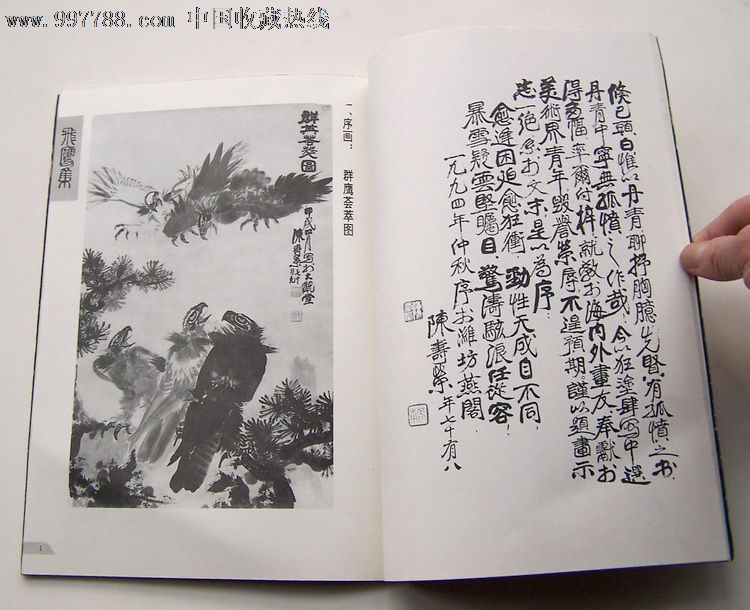 www.997788.com 中国收藏热线
飛鷹集
一、序画：
群鹰荟萃图
群英薈萃圖
陳壽榮
1
倏已頭白惟以丹青聊抒胸臆先賢有孤憤之書
丹青中寧無孤憤之作哉！今以狂塗肆寫中選
得多幅率爾付梓就教於海內外畫友奉獻於
美術界青年毀譽榮辱不遑預期謹以題畫示
志一絕系於文末是以為序：
愈逢困厄愈狂衝，勁性天成自不同，
暴雪疑雲豎矚目，驚濤駭浪任從容！
一九九四年仲秋序於濰坊燕閣
陳壽榮年七十有八